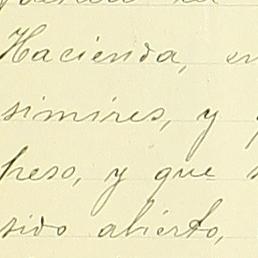 Hacienda, en
simires, y
peso, y que
sido abierto,